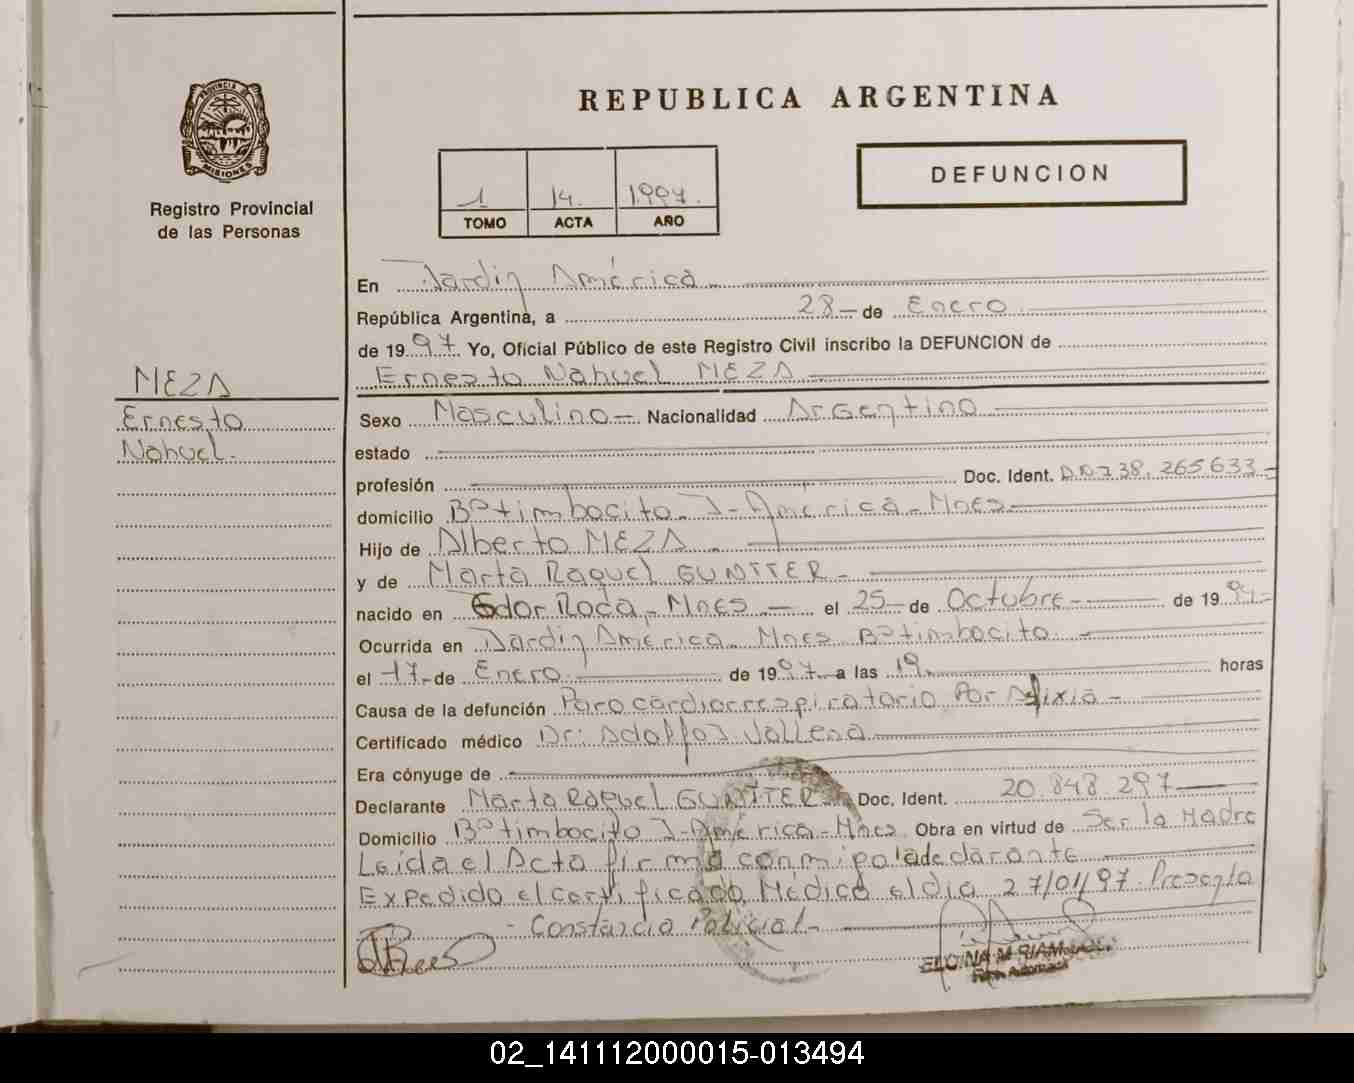 REPUBLICA ARGENTINA
PROVINCIA DE
MISIONES
Registro Provincial
de las Personas
1 14. 1.997.
TOMO ACTA AÑO
DEFUNCION
MEZA
Ernesto
Nahuel.
En Jardin América
República Argentina, a 28 de Enero
de 1997 Yo, Oficial Público de este Registro Civil inscribo la DEFUNCION de
Ernesto Nahuel MEZA
Sexo Masculino Nacionalidad Argentino
estado
profesión Doc. Ident. 38.265.633
domicilio Bº timbocito J-América-Mnes
Hijo de Alberto MEZA
y de Marta Raquel GUNTTER
nacido en Gdor Roca, Mnes el 25 de Octubre de 1994
Ocurrida en Jardin América Mnes Bº timbocito
el 17 de Enero de 1997 a las 19 horas
Causa de la defunción Paro cardiorrespiratorio Por Asfixia
Certificado médico Dr: Adolfo J
Era cónyuge de
Declarante Marta Raquel GUNTTER Doc. Ident. 20.848.297
Domicilio Bº timbocito J-América-Mnes Obra en virtud de Ser la Madre
Leida el Acta firma conmigo la declarante
Expedido el certificado Médico el dia 27/01/97. Presenta
Constancia Policial
02_141112000015-013494